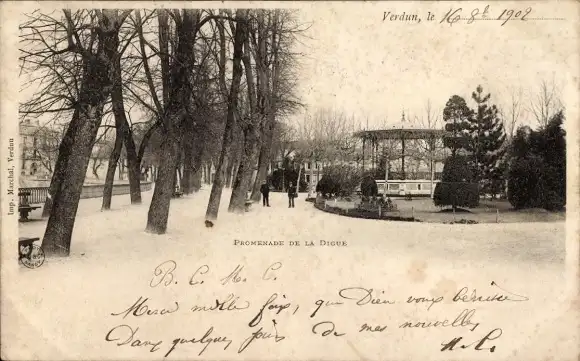 Verdun, le 16 8bre 1902
Imp. Marchal, Verdun
PROMENADE DE LA DIGUE
B. C. M. C.
Merci mille fois, que Dieu vous bénisse
Dans quelques jours de mes nouvelles